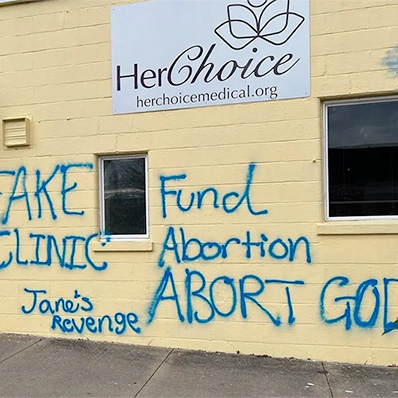 HerChoice
herchoicemedical.org
FAKE
CLINIC
Fund
Abortion
ABORT GOD
Jane's
Revenge